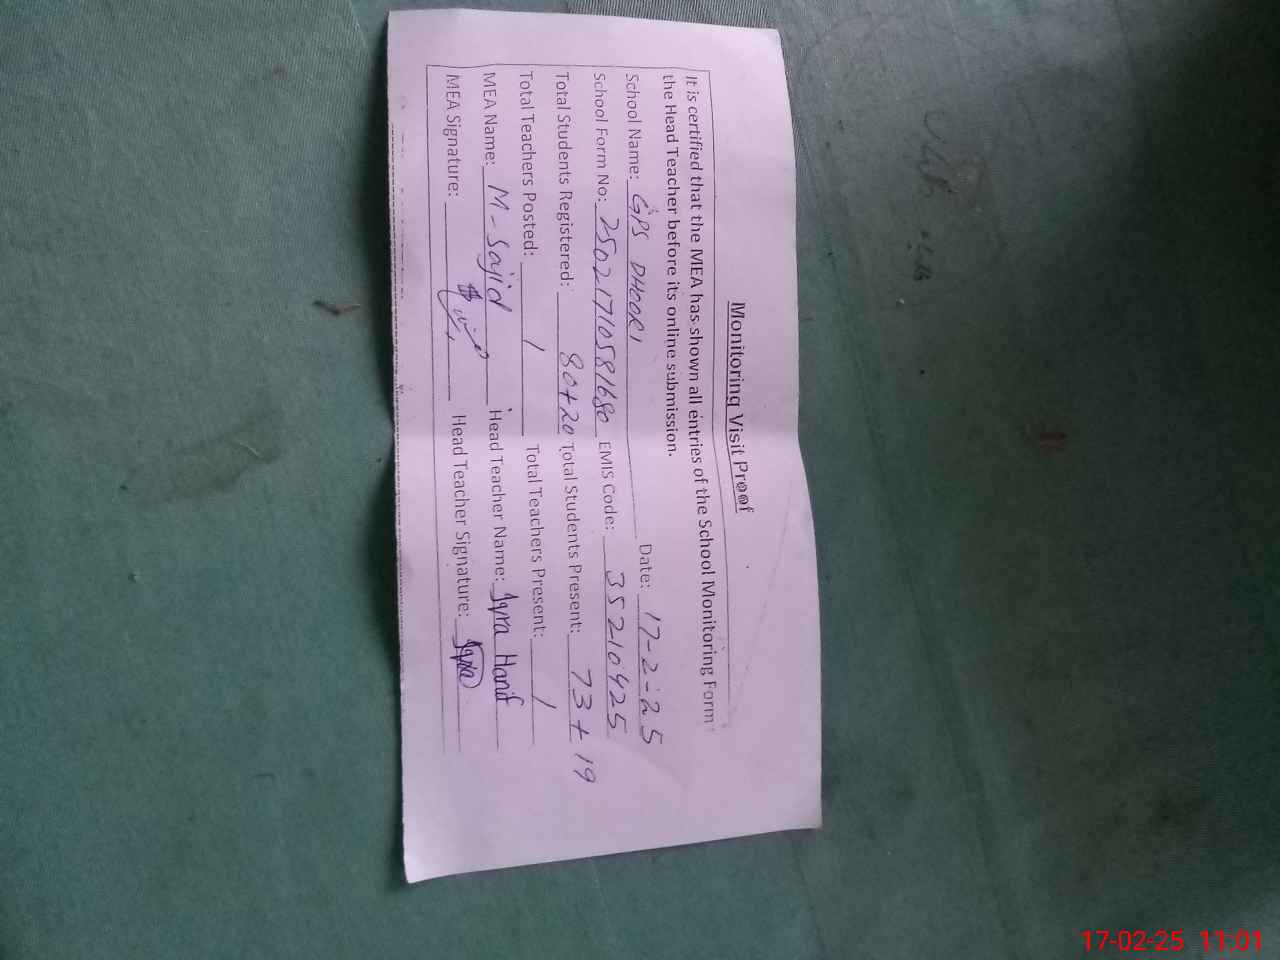 Monitoring Visit Proof
It is certified that the MEA has shown all entries of the School Monitoring Form
the Head Teacher before its online submission.
School Name: GPS DHOORI Date: 17-2-25
School Form No: 25021710581680 EMIS Code: 35210425
Total Students Registered: 80+20 Total Students Present: 73+19
Total Teachers Posted: 1 Total Teachers Present: 1
MEA Name: M-Sajid Head Teacher Name: Iqra Hanif
MEA Signature: Head Teacher Signature: Iqra
17-02-25 11:01